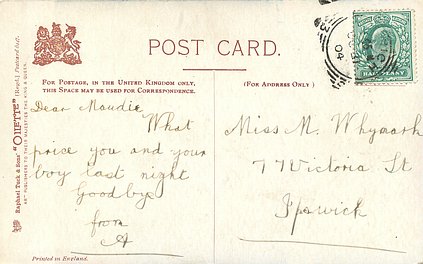 POST CARD.
FOR POSTAGE, IN THE UNITED KINGDOM ONLY,
THIS SPACE MAY BE USED FOR CORRESPONDENCE.
(FOR ADDRESS ONLY)
HALFPENNY
Raphael Tuck & Sons' "OILETTE" [Regd.] Postcard
ART PUBLISHERS TO THEIR MAJESTIES THE KING & QUEEN.
Dear Maudie
What
price you and your
boy last night
Goodbye
from
A
Printed in England.
Miss M. Whyaark
77 Victoria St
Ipswich